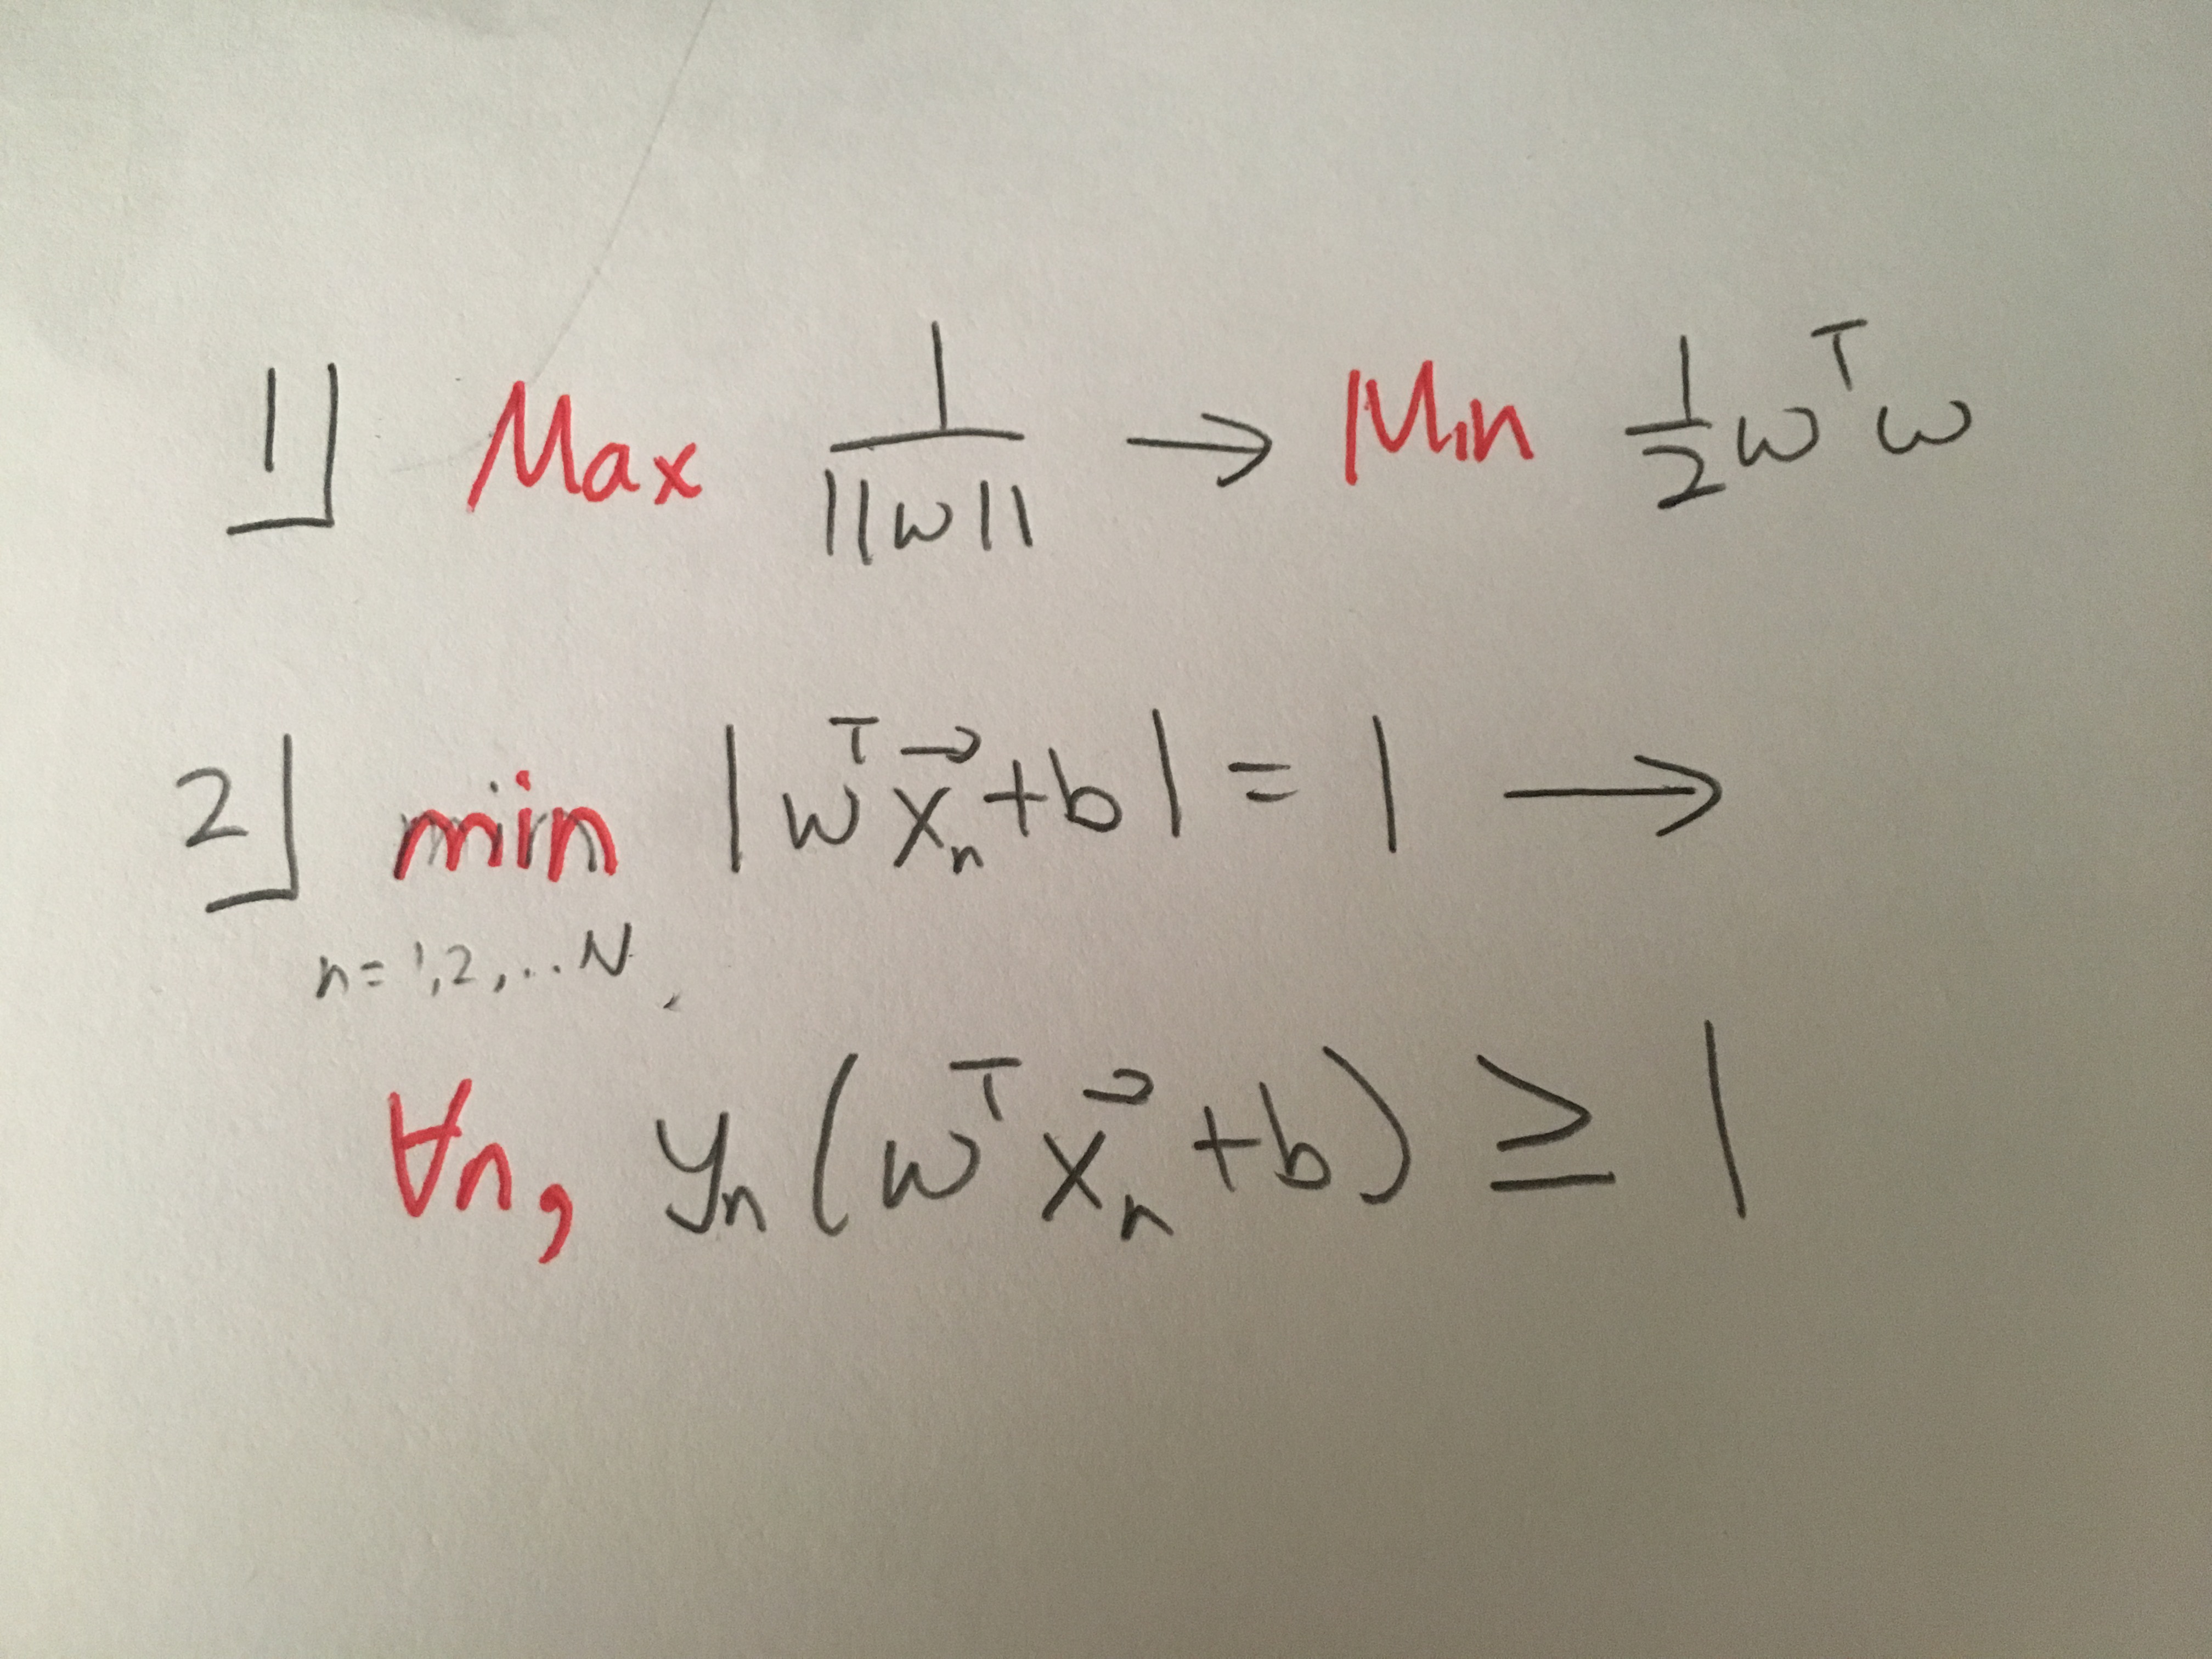 1] Max 1/||w|| → Min 1/2 wᵀw
2] min |wᵀx⃗ₙ+b| = 1 →
n=1,2,..N
∀n, yₙ(wᵀx⃗ₙ+b) ≥ 1